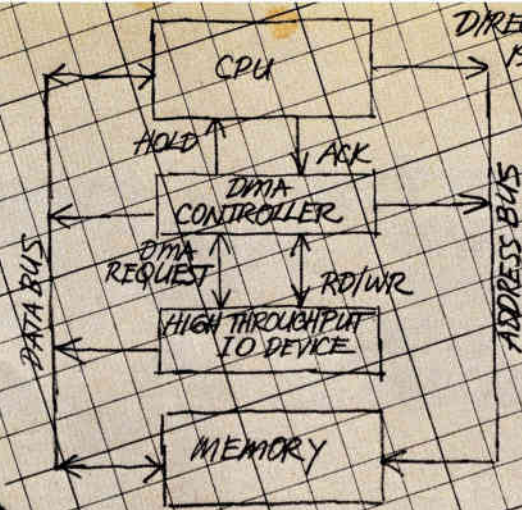 CPU
HOLD
ACK
DMA
CONTROLLER
DMA
REQUEST
RD/WR
HIGH THROUGHPUT
IO DEVICE
MEMORY
DATA BUS
ADDRESS BUS